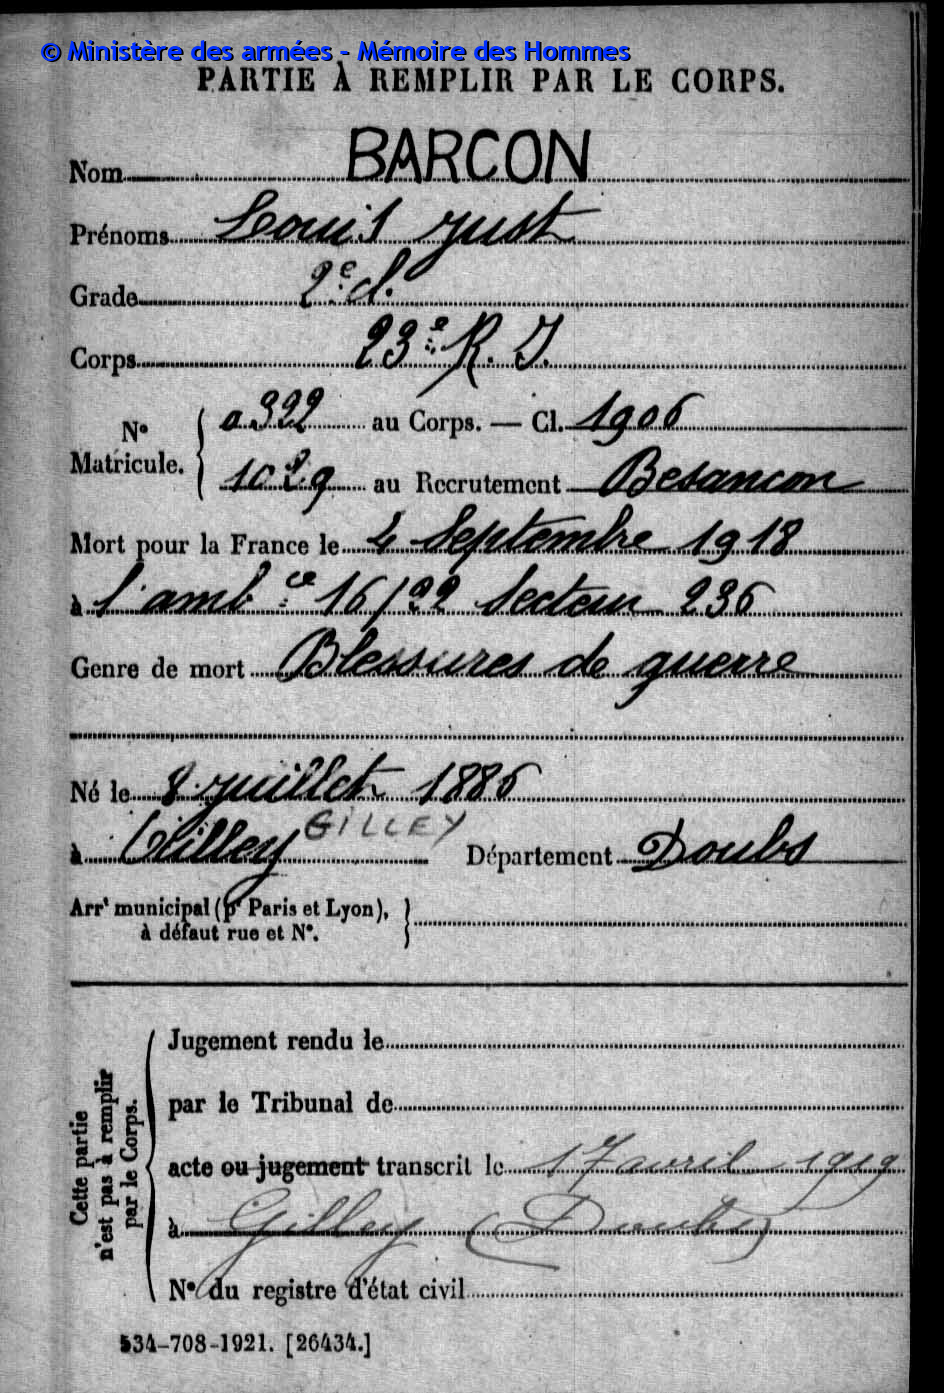 © Ministère des armées - Mémoire des Hommes
PARTIE À REMPLIR PAR LE CORPS.
Nom BARCON
Prénoms Louis Just
Grade 2e cl.
Corps 23e R. I.
N° Matricule. a322 au Corps. — Cl. 1906
1029 au Recrutement Besancon
Mort pour la France le 4 Septembre 1918
à l'ambce 16/22 Secteur 236
Genre de mort Blessures de guerre
Né le 8 juillet 1886
à Gilley GILLEY Département Doubs
Arrt municipal (pr Paris et Lyon),
à défaut rue et N°.
Cette partie n'est pas à remplir par le Corps.
Jugement rendu le
par le Tribunal de
acte ou jugement transcrit le 17 avril 1919
à Gilley (Doubs)
N° du registre d'état civil
534-708-1921. [26434.]